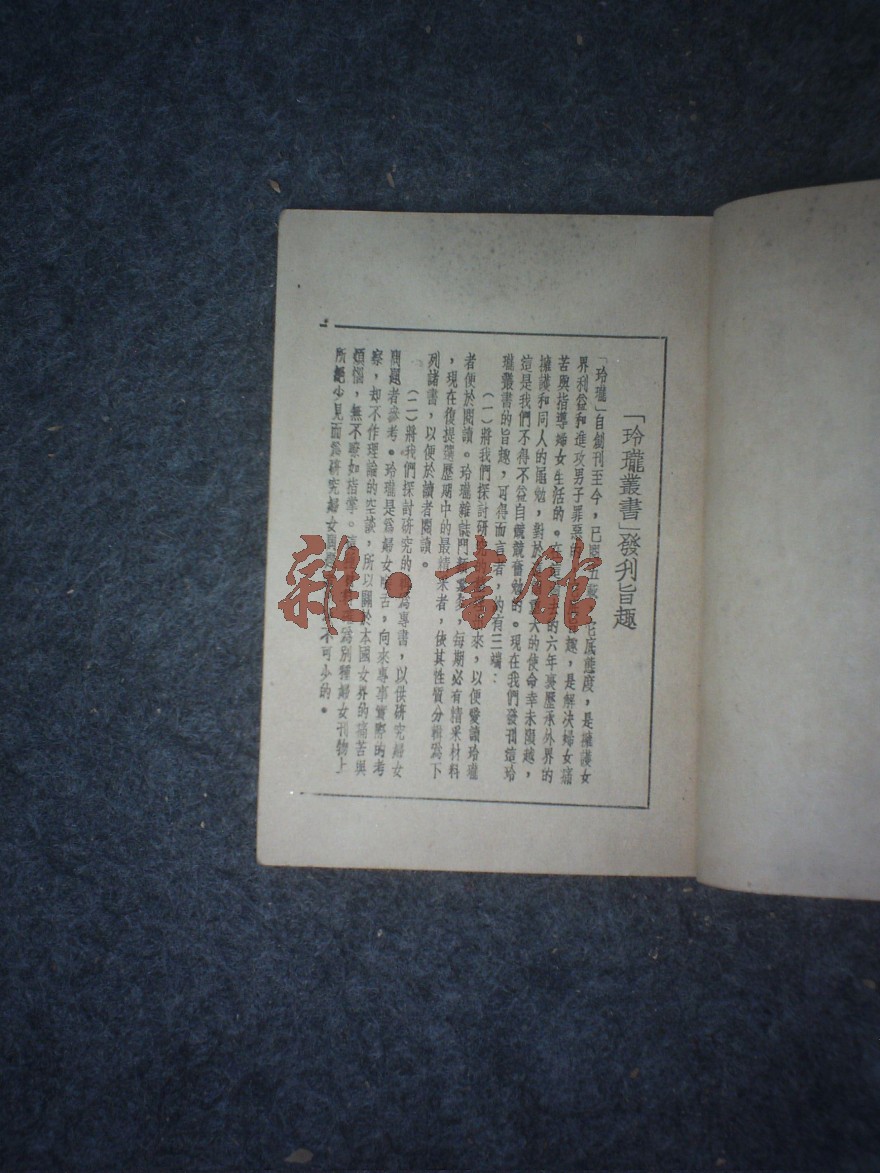 「玲瓏叢書」發刊旨趣
「玲瓏」自創刊至今,已 態度,是擁護女
界利益和進攻男子罪惡的 趣,是解决婦女痛
苦與指導婦女生活的。在 的六年裏歷承外界的
擁護和同人的黽勉,對於 重大的使命幸未隕越,
這是我們不得不益自兢兢奮勉的。現在我們發刊這玲
瓏叢書的旨趣,可得而言者,約有三端:
(一)將我們探討研 來,以便愛讀玲瓏
者便於閱讀。玲瓏雜誌門類 ,每期必有精采材料
,現在復提選歷期中的最精采者,依其性質分輯爲下
列諸書,以便於讀者閱讀。
(二)將我們探討研究的 爲專書,以供研究婦女
問題者參考。玲瓏是爲婦女喉舌,向來專事實際的考
察,却不作理論的空談,所以關於本國女界的痛苦與
煩惱,無不瞭如指掌。這 爲別種婦女刊物上
所絕少見而爲研究婦女問題 不可少的。
雜·書館